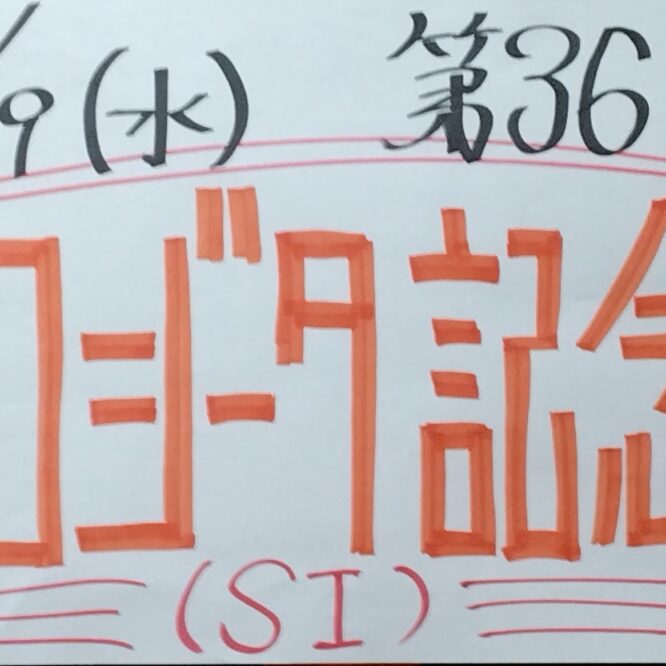 /9(水) 第36
ロジータ記念
(SI)